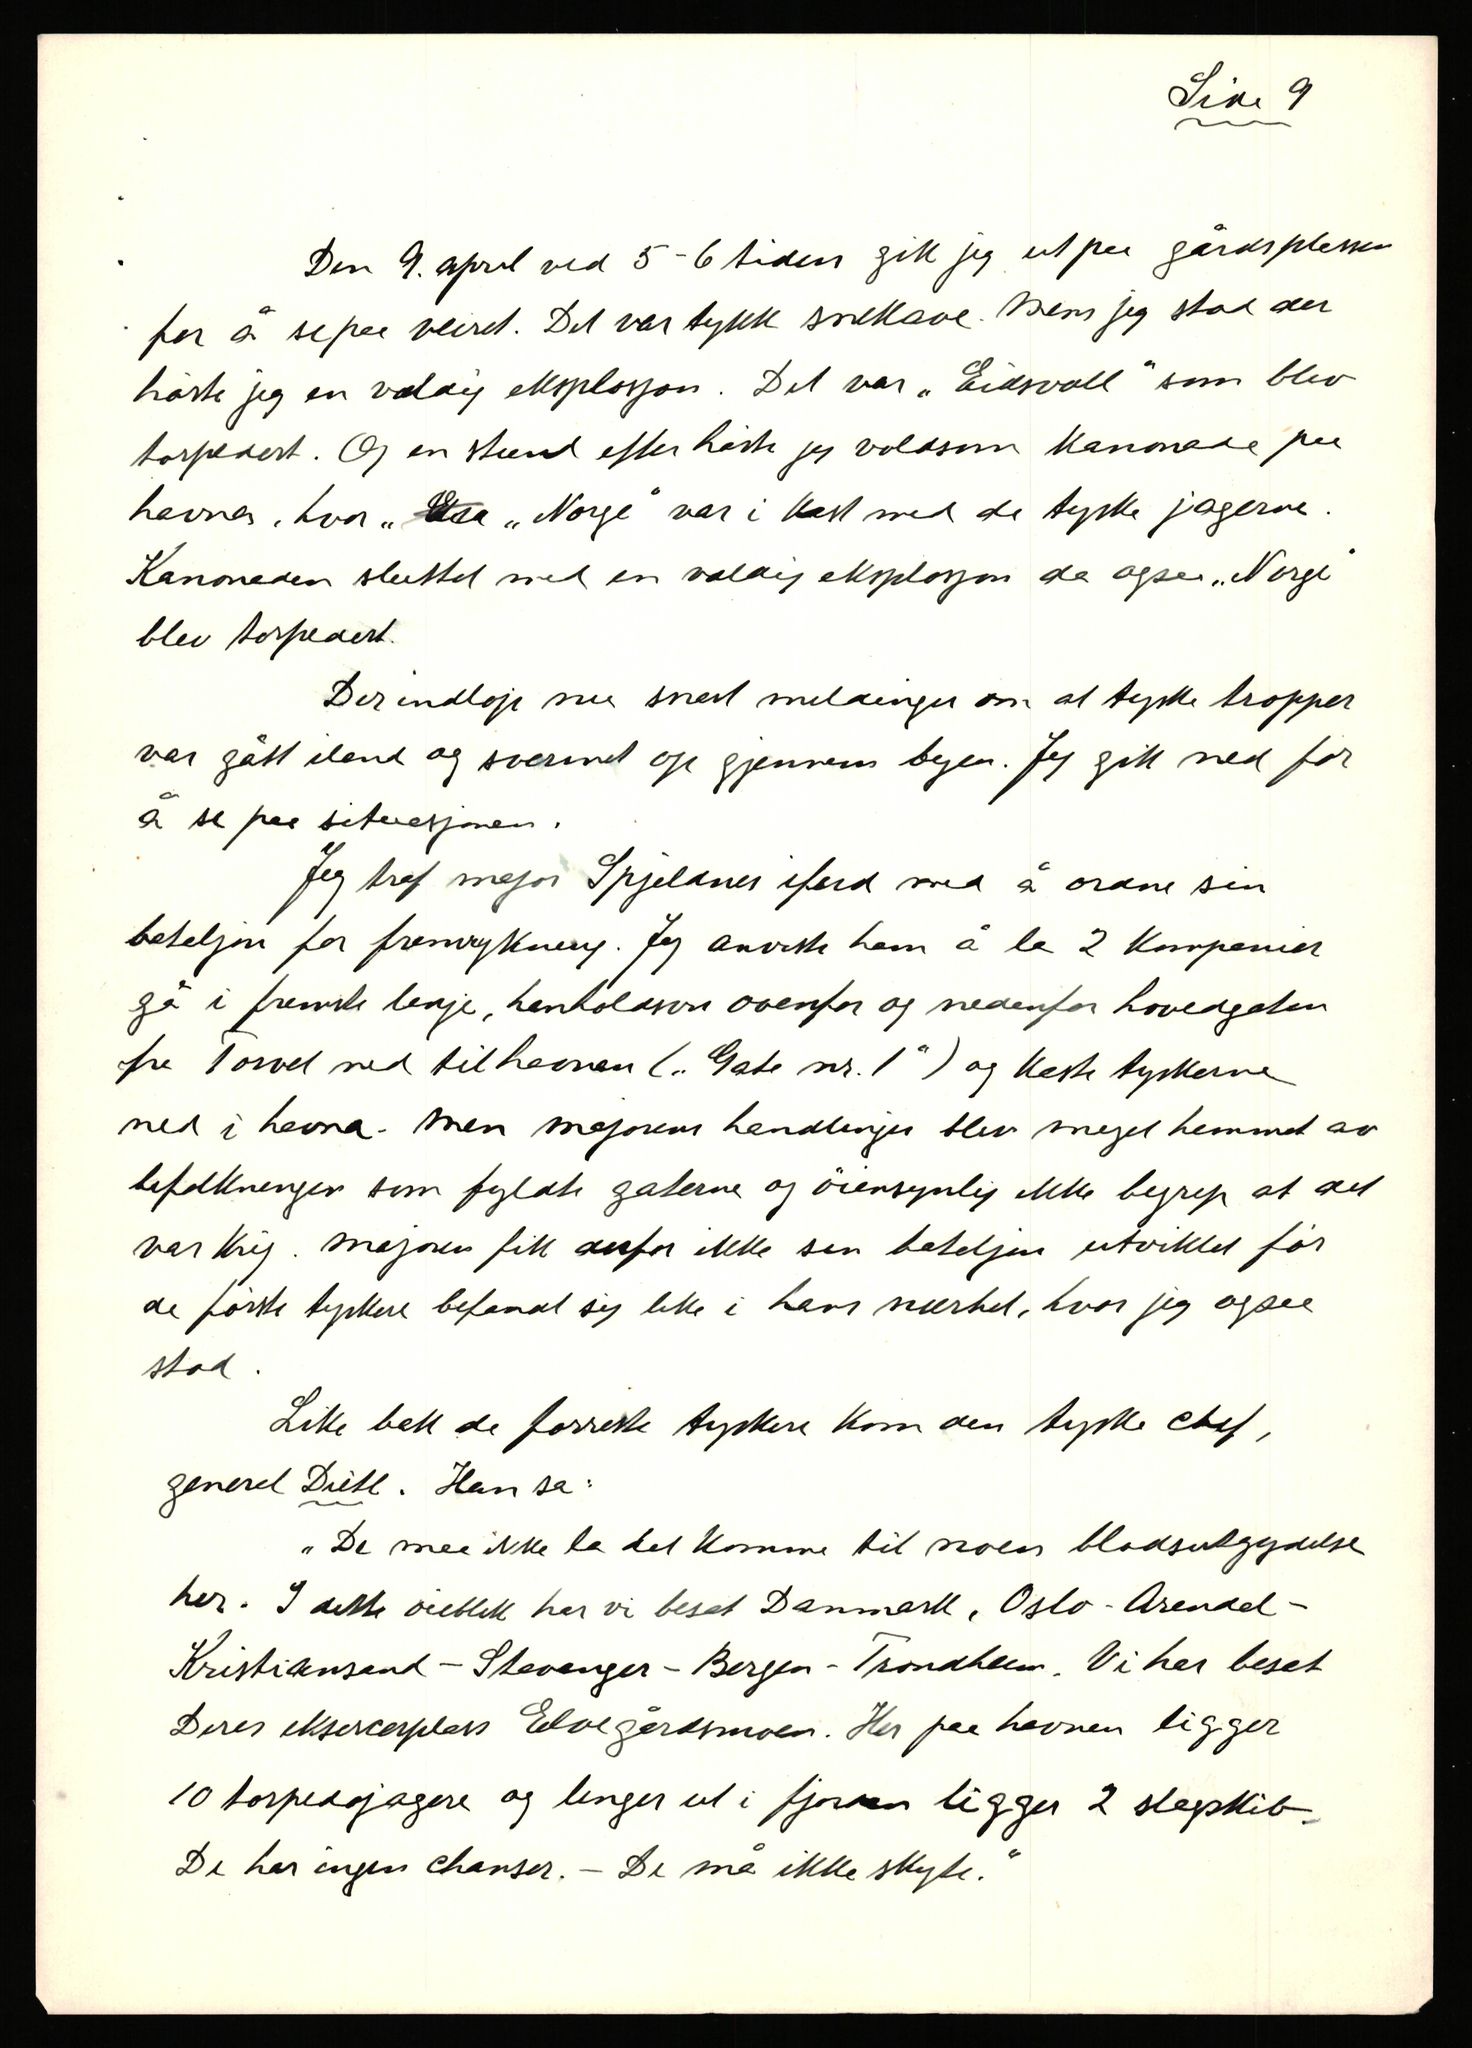 Side 9
Den 9. april ved 5-6 tiden gikk jeg ut paa gårdsplassen
for å se paa veiret. Det var tykk snekave. Mens jeg stod der
hörte jeg en voldig eksplosjon. Det var „Eidsvoll" som blev
torpedert. Og en stund efter hörte jeg voldsom kanonade paa
havnen, hvor „ „Norge" var i kast med de tyske jagerne.
Kanonaden sluttet med en voldig eksplosjon da ogsaa „Norge"
blev torpedert.
Der indlöp nu snart meldinger om at tyske tropper
var gått iland og svermet op gjennem byen. Jeg gikk ned for
å se paa situasjonen.
Jeg traf major Spjeldnes iferd med å ordne sin
bataljon for fremrykning. Jeg anviste ham å la 2 kompanier
gå i fremste linje, henholdsvis ovenfor og nedenfor hovedgaten
fra Torvet ned til havnen („Gate nr. 1") og kaste tyskerne
ned i havna. Men majorens handlinger blev meget hemmet av
befolkningen som fyldte gaterne og öiensynlig ikke begrep at det
var krig. Majoren fikk derfor ikke sin bataljon utviklet för
de förste tyskere befandt sig like i hans nærhet, hvor jeg ogsaa
stod.
Like bak de forreste tyskere kom den tyske chef,
general Dietl. Han sa:
„De maa ikke la det komme til noen blodsutgydelse
her. I dette öieblikk har vi besat Danmark, Oslo - Arendal -
Kristiansand - Stavanger - Bergen - Trondheim. Vi har besat
Deres eksercerplass Elvegårdsmoen. Her paa havnen ligger
10 torpedojagere og lenger ut i fjorden ligger 2 slagskib.
De har ingen chanser. - De må ikke skyte."